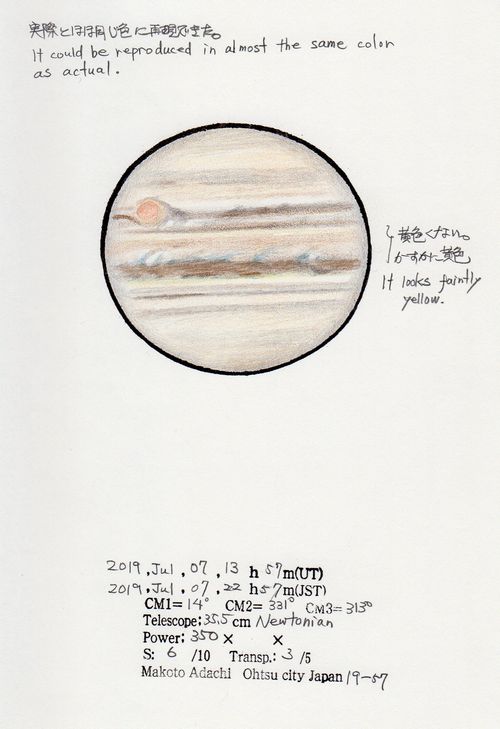 実際とほぼ同じ色に再現できた。
It could be reproduced in almost the same color
as actual.
黄色くない。
かすかに黄色
It looks faintly
yellow.
2019, Jul, 07, 13 h 57m(UT)
2019, Jul, 07, 22 h 57m(JST)
CM1= 14° CM2= 331° CM3= 313°
Telescope: 35.5 cm Newtonian
Power: 350 × ×
S: 6 /10 Transp.: 3 /5
Makoto Adachi Ohtsu city Japan 19-57